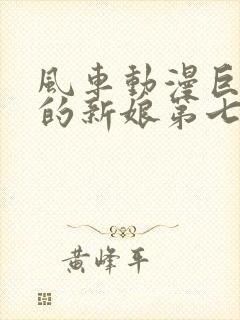 風車動漫巨
的新娘第七
黃峰平